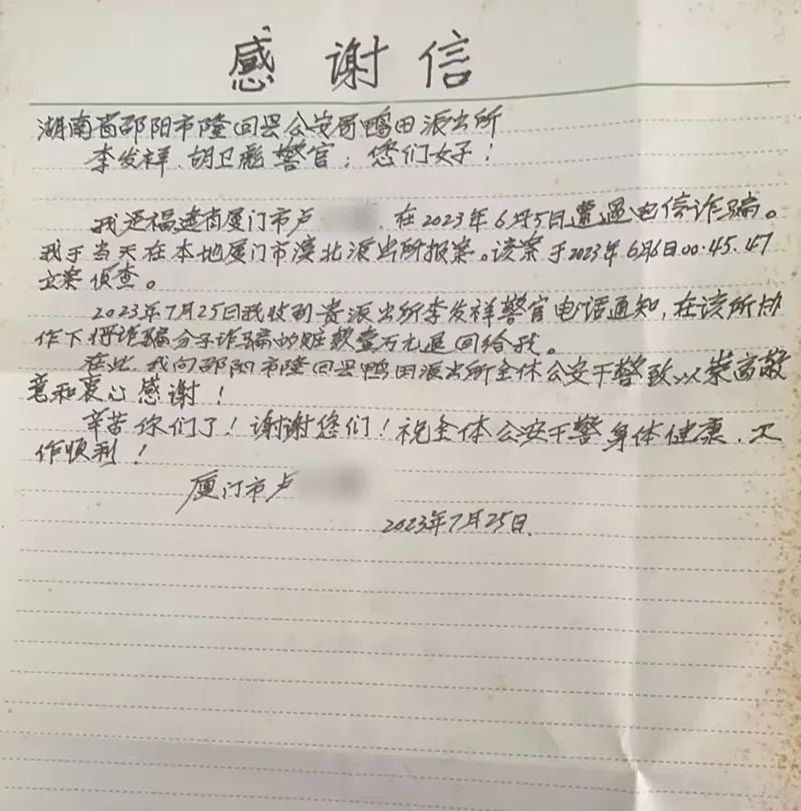 感谢信
湖南省邵阳市隆回县公安局鸭田派出所
李发祥、胡卫彪警官：您们好！
我是福建省厦门市卢 ，在2023年6月5日遭遇电信诈骗。
我于当天在本地厦门市滨北派出所报案。该案于2023年6月6日00.45.47
立案侦查。
2023年7月25日我收到贵派出所李发祥警官电话通知，在该所协
作下将诈骗分子诈骗的赃款壹万元退回给我。
在此，我向邵阳市隆回县鸭田派出所全体公安干警致以崇高敬
意和衷心感谢！
辛苦你们了！谢谢您们！祝全体公安干警身体健康、工
作顺利！
厦门市卢
2023年7月25日.